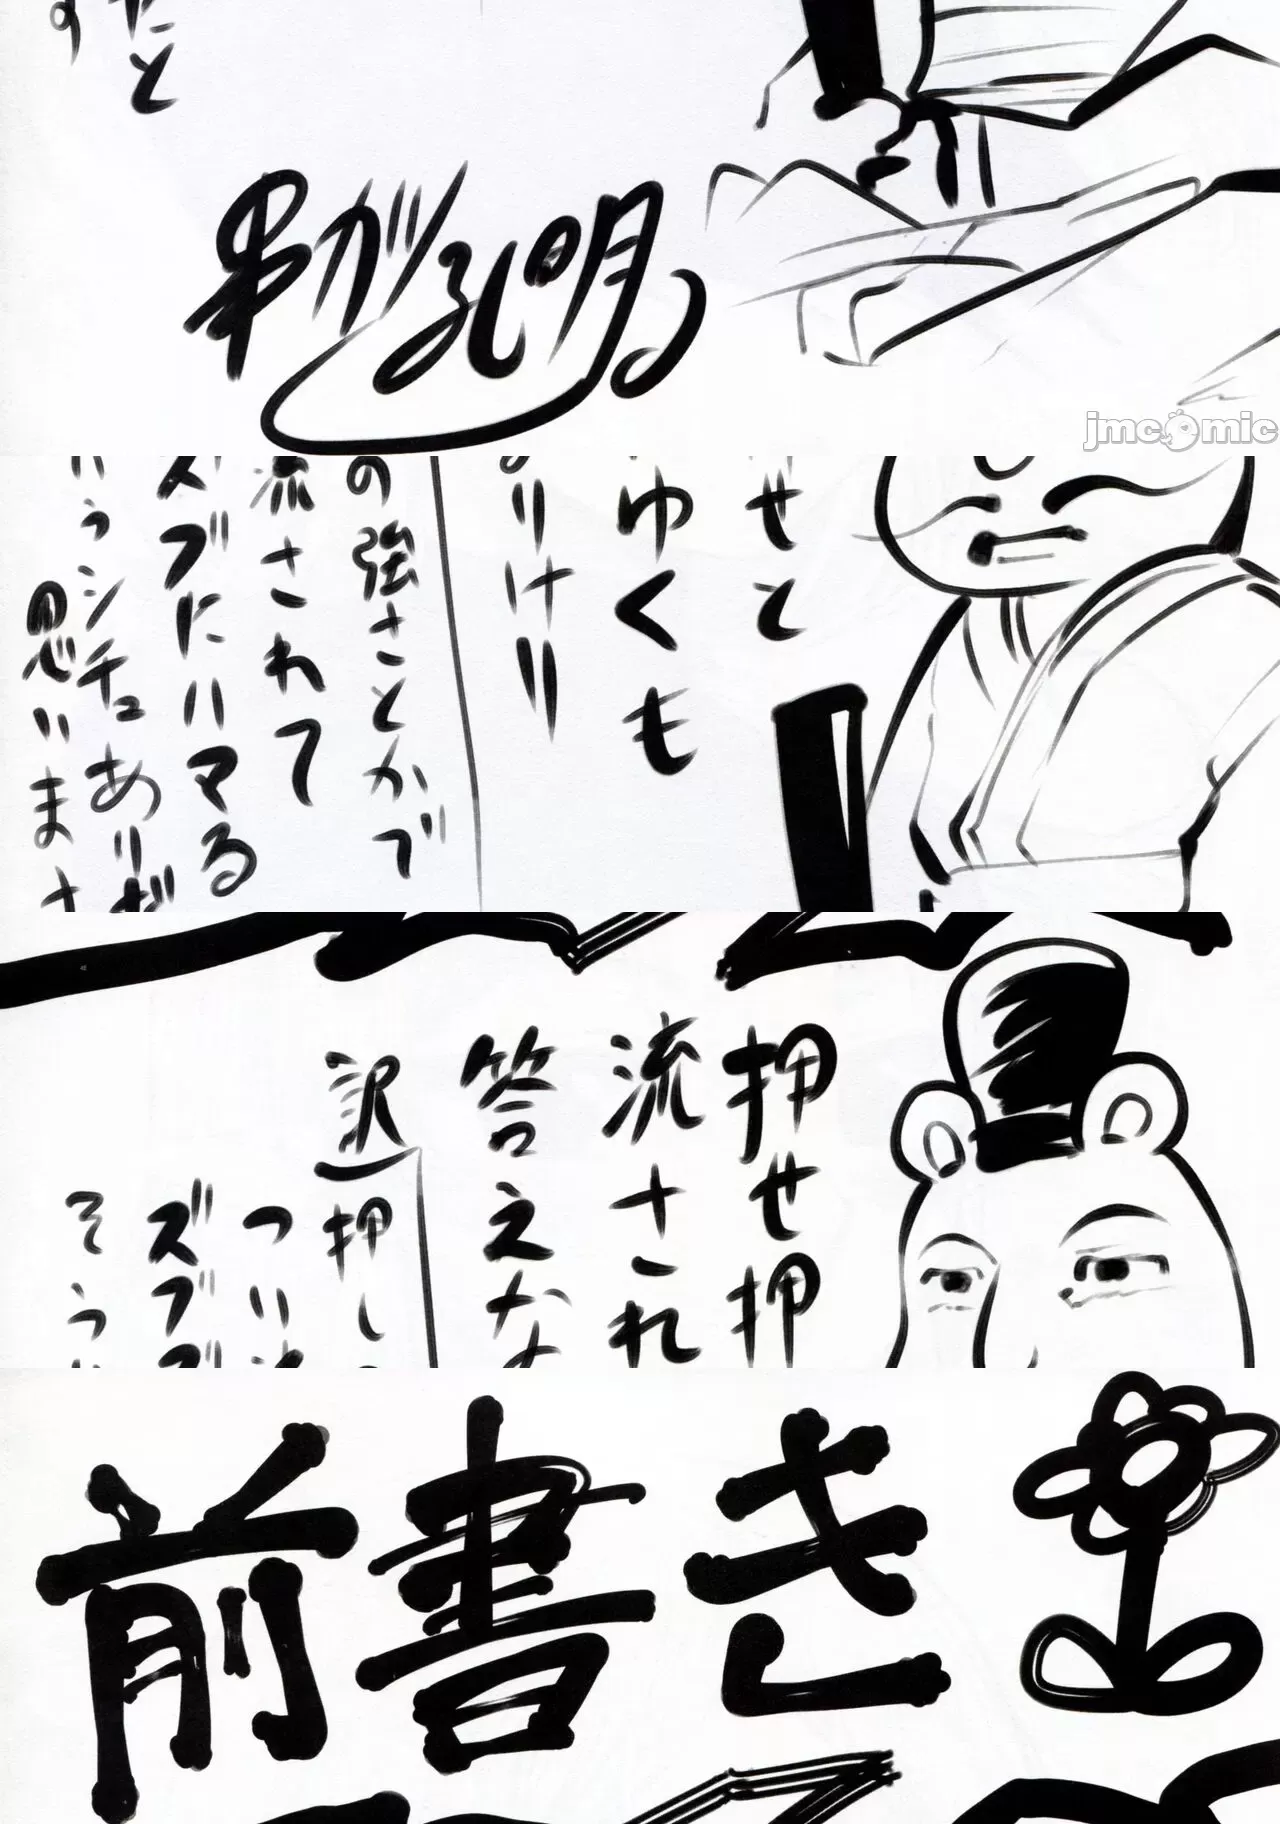 たと
す
孔明
jmcomic
せと
ゆくも
りけり
の強さとかで
流されて
ズブにハマる
いうシチュあり
思いま
押せ押
流され
答えな
訳
押し
つい
ズブ
そう
前書き